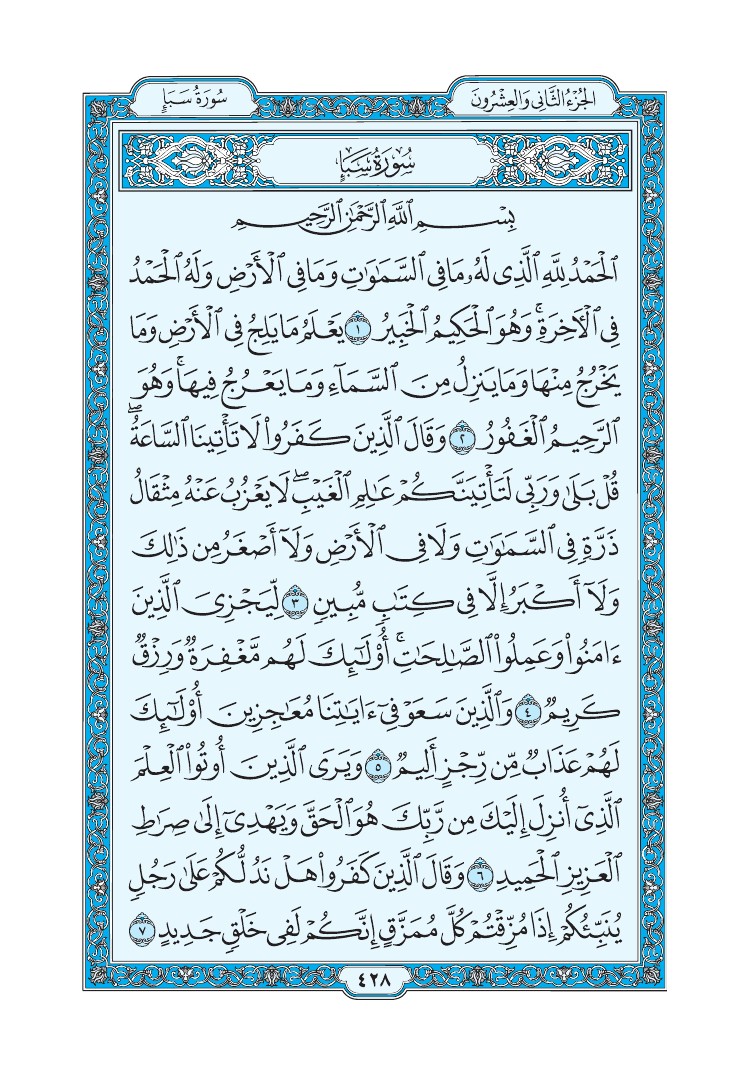 الجُزْءُ الثَّانِي وَالعِشْرُونَ
سُورَةُ سَبَإٍ
سُورَةُ سَبَإٍ
بِسْمِ ٱللَّهِ ٱلرَّحْمَٰنِ ٱلرَّحِيمِ
ٱلْحَمْدُ لِلَّهِ ٱلَّذِى لَهُۥ مَا فِى ٱلسَّمَٰوَٰتِ وَمَا فِى ٱلْأَرْضِ وَلَهُ ٱلْحَمْدُ
فِى ٱلْأَخِرَةِۚ وَهُوَ ٱلْحَكِيمُ ٱلْخَبِيرُ ١ يَعْلَمُ مَا يَلِجُ فِى ٱلْأَرْضِ وَمَا
يَخْرُجُ مِنْهَا وَمَا يَنزِلُ مِنَ ٱلسَّمَآءِ وَمَا يَعْرُجُ فِيهَاۚ وَهُوَ
ٱلرَّحِيمُ ٱلْغَفُورُ ٢ وَقَالَ ٱلَّذِينَ كَفَرُوا۟ لَا تَأْتِينَا ٱلسَّاعَةُۖ
قُلْ بَلَىٰ وَرَبِّى لَتَأْتِيَنَّكُمْ عَٰلِمِ ٱلْغَيْبِۖ لَا يَعْزُبُ عَنْهُ مِثْقَالُ
ذَرَّةٍ فِى ٱلسَّمَٰوَٰتِ وَلَا فِى ٱلْأَرْضِ وَلَآ أَصْغَرُ مِن ذَٰلِكَ
وَلَآ أَكْبَرُ إِلَّا فِى كِتَٰبٍ مُّبِينٍ ٣ لِّيَجْزِىَ ٱلَّذِينَ
ءَامَنُوا۟ وَعَمِلُوا۟ ٱلصَّٰلِحَٰتِۚ أُو۟لَٰٓئِكَ لَهُم مَّغْفِرَةٌ وَرِزْقٌ
كَرِيمٌ ٤ وَٱلَّذِينَ سَعَوْ فِىٓ ءَايَٰتِنَا مُعَٰجِزِينَ أُو۟لَٰٓئِكَ
لَهُمْ عَذَابٌ مِّن رِّجْزٍ أَلِيمٌ ٥ وَيَرَى ٱلَّذِينَ أُوتُوا۟ ٱلْعِلْمَ
ٱلَّذِىٓ أُنزِلَ إِلَيْكَ مِن رَّبِّكَ هُوَ ٱلْحَقَّ وَيَهْدِىٓ إِلَىٰ صِرَٰطِ
ٱلْعَزِيزِ ٱلْحَمِيدِ ٦ وَقَالَ ٱلَّذِينَ كَفَرُوا۟ هَلْ نَدُلُّكُمْ عَلَىٰ رَجُلٍ
يُنَبِّئُكُمْ إِذَا مُزِّقْتُمْ كُلَّ مُمَزَّقٍ إِنَّكُمْ لَفِى خَلْقٍ جَدِيدٍ ٧
٤٢٨